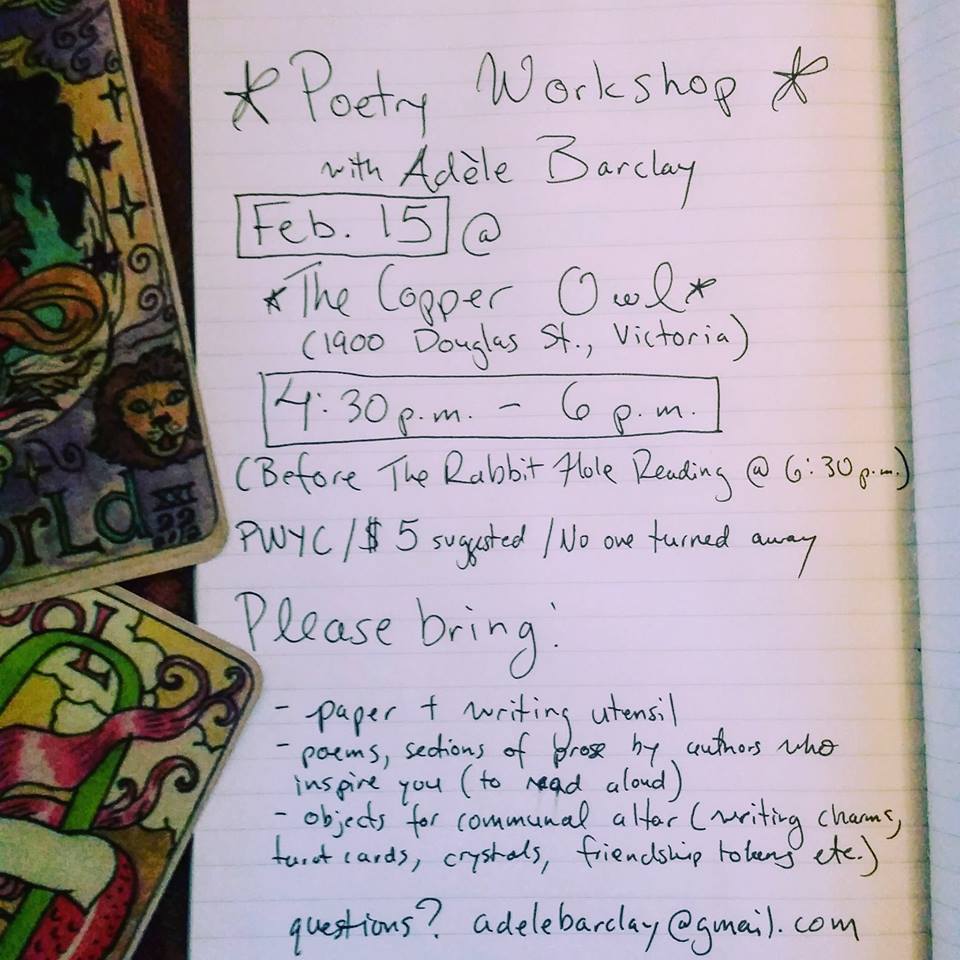 * Poetry Workshop *
with Adèle Barclay
Feb. 15 @
*The Copper Owl*
(1900 Douglas St., Victoria)
4:30 p.m. - 6 p.m.
(Before The Rabbit Hole Reading @ 6:30 p.m.)
PWYC / $5 suggested / No one turned away
Please bring:
- paper + writing utensil
- poems, sections of prose by authors who
inspire you (to read aloud)
- objects for communal altar (writing charms,
tarot cards, crystals, friendship tokens etc.)
questions? adelebarclay@gmail.com
orld XXI
OOL